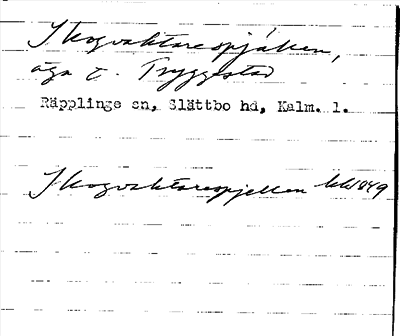 Skogvaktarespjäken,
äga t. Tryggestad
Räpplinge sn, Slättbo hd, Kalm. l.
Skogvaktarespjelken